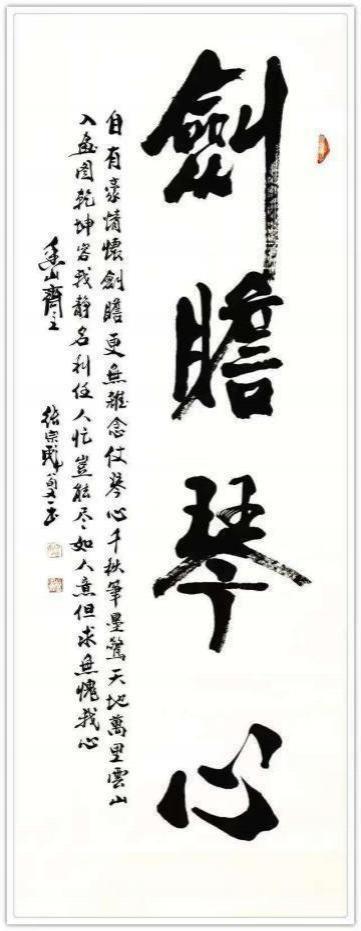 劍膽琴心
自有豪情懷劍膽更無雜念仗琴心千秋筆墨驚天地萬里雲山
入畫圖乾坤容我静名利任人忙豈能尽如人意但求無愧我心
山齋主